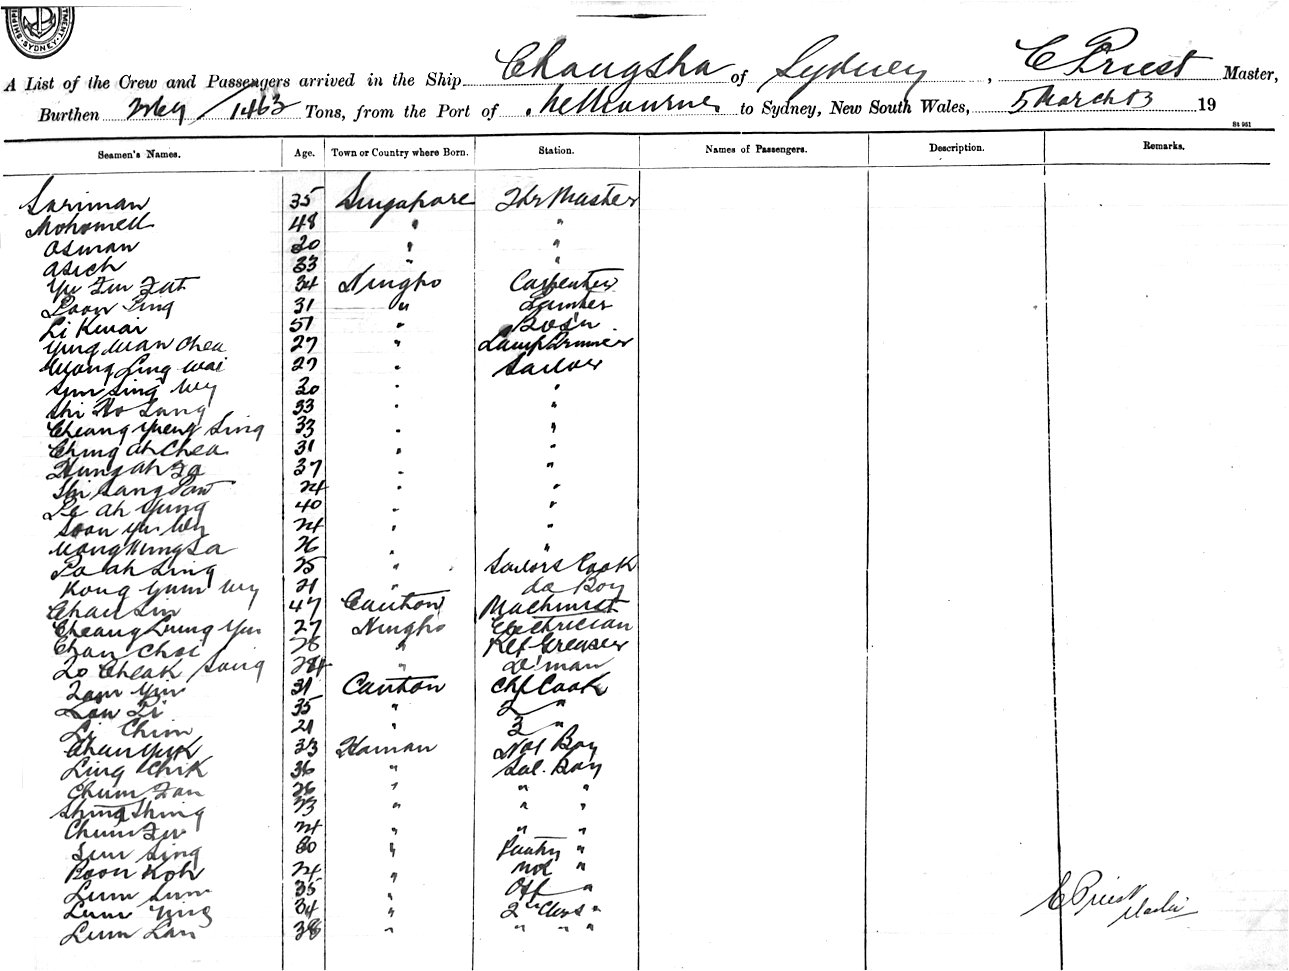 SYDNEY
A List of the Crew and Passengers arrived in the Ship Changsha of Sydney, C Priest Master,
Burthen 1463 Tons, from the Port of Melbourne to Sydney, New South Wales, 5 March 13 19
St 951
Seamen's Names. Age. Town or Country where Born. Station. Names of Passengers. Description. Remarks.
Sariman 35 Singapore Master
Mohomed 48 " "
Osman 30 " "
Asich 33 " "
34 Ningpo Carpenter
31 "
Li Kwai 51 " Bos'n
Ying Wan Chea 27 " Lamptrimmer
Wong Ling Wai 27 " Sailor
Sun Sing Wy 30 " "
Shi Ho Sang 33 " "
Cheang Yueng Sing 33 " "
Ching Ah Chea 31 " "
Hung Ah 37 " "
Shi Sang 24 " "
Le Ah Yung 40 " "
Soon Yu Wy 24 " "
Wong Kung Sa 26 " "
Lo Ah Ling 25 " Sailors Cook
Kong Yum Wy 21 " do Boy
Chan Sin 47 Canton Machinist
Cheang Leung Yun 27 Ningpo Electrician
Chan Choi 28 " Ref Greaser
Lo Cheak Song 24 "
Yun 31 Canton Chf Cook
Lau Li 35 " 2 "
Li Chim 21 " 3 "
Chan Yuk 33 Hainan Boy
Ling Chik 36 " Sal. Boy
Chum 26 " " "
Shing Shing 23 " " "
Chum 24 " " "
Sum Sing 30 " Pantry "
Boon Koh 24 " "
Lum Lum 35 " Off "
Lum Ying 34 " 2nd Class "
Lum Lan 38 " " " "
C Priest
Master